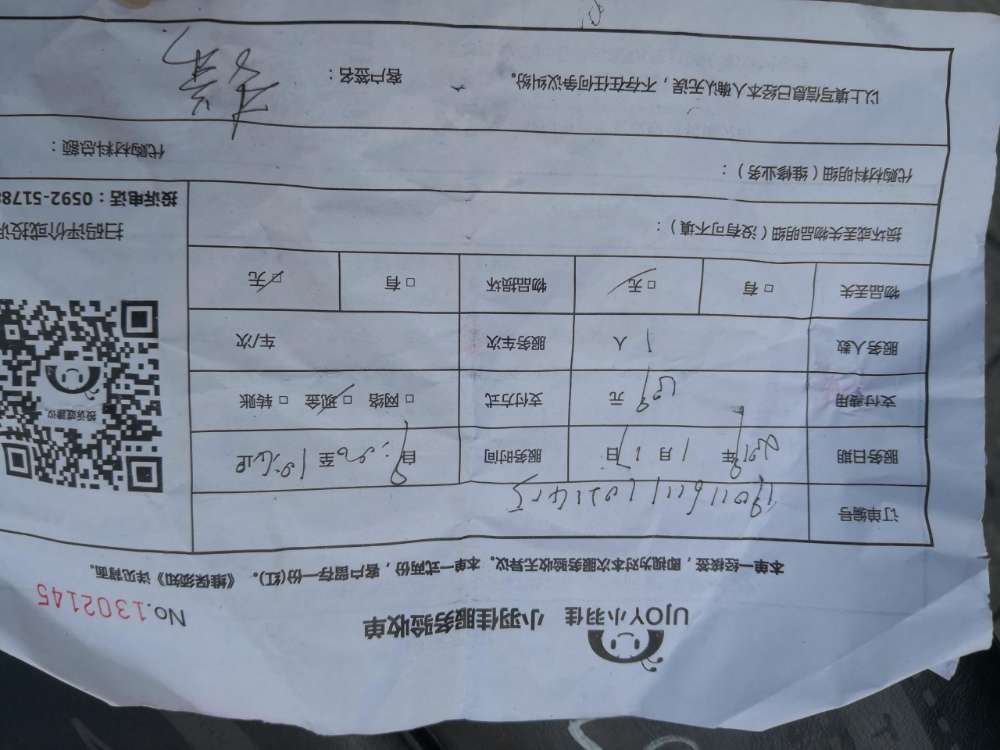 UJOY小羽佳 小羽佳服务验收单
No.1302145
本单一经接签，即视为对本次服务验收无异议。本单一式两份，客户留存一份(红)。《维保须知》详见背面。
订单编号
服务日期 2019年 1月17日 服务时间 自 9:00 至
支付费用 元 支付方式 □ 网络 □ 现金 □ 转账
服务人数 1 人 服务车次 车/次
物品丢失 □ 有 □ 无 物品损坏 □ 有 □ 无
投诉或建议
扫码评价或投诉
投诉电话：0592-5178
损坏或丢失物品明细（没有可不填）：
代购材料明细（维修业务）：
代购材料总额：
以上填写信息已经本人确认无误，不存在任何争议纠纷。
客户签名：